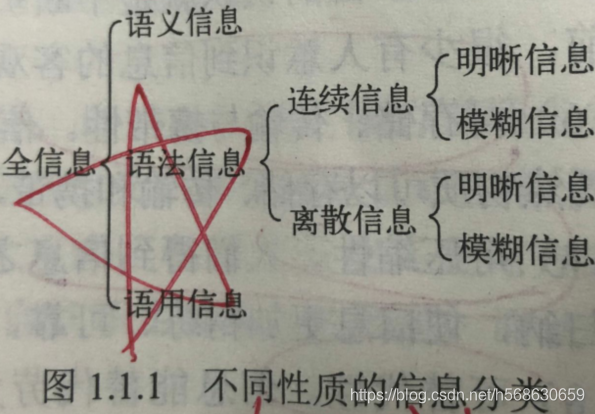 语义信息
明晰信息
连续信息
模糊信息
全信息
语法信息
明晰信息
离散信息
模糊信息
语用信息
图 1.1.1 不同性质的信息分类
https://blog.csdn.net/h568630659